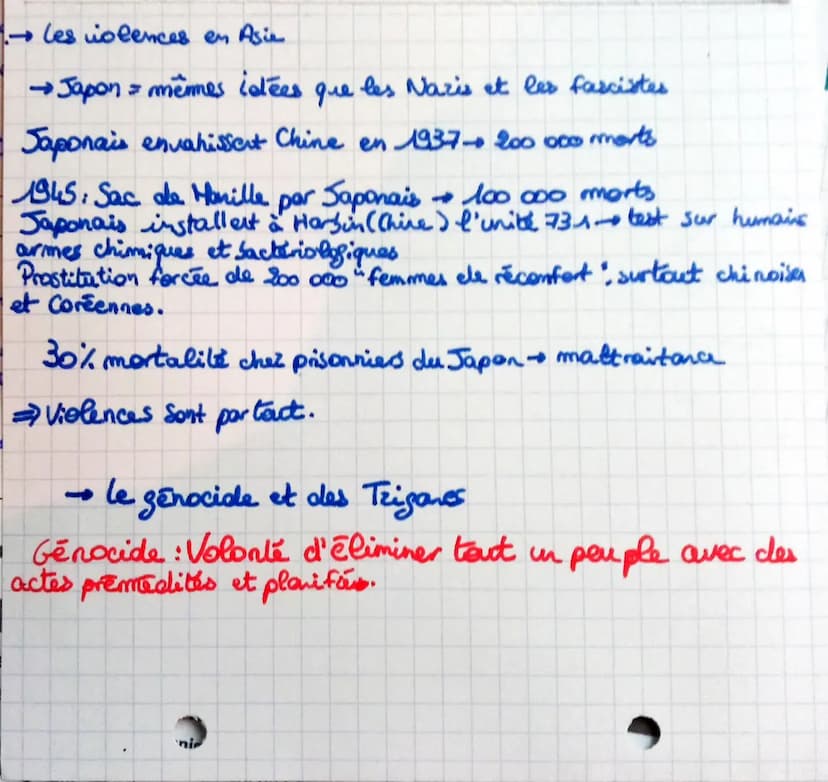 .→ Les violences en Asie
→ Japon = mêmes idées que les Nazis et les fascistes
Japonais envahissent Chine en 1937 → 200 000 morts
1945 : Sac de Manille par Japonais → 100 000 morts
Japonais installent à Harbin (Chine) l'unité 731 → test sur humains
armes chimiques et bactériologiques
Prostitution forcée de 200 000 "femmes de réconfort", surtout chinoises
et Coréennes.
30% mortalité chez prisonniers du Japon → maltraitance
⇒ Violences sont partout.
→ Le génocide et des Tziganes
Génocide : Volonté d'éliminer tout un peuple avec des
actes prémédités et planifiés.
nie